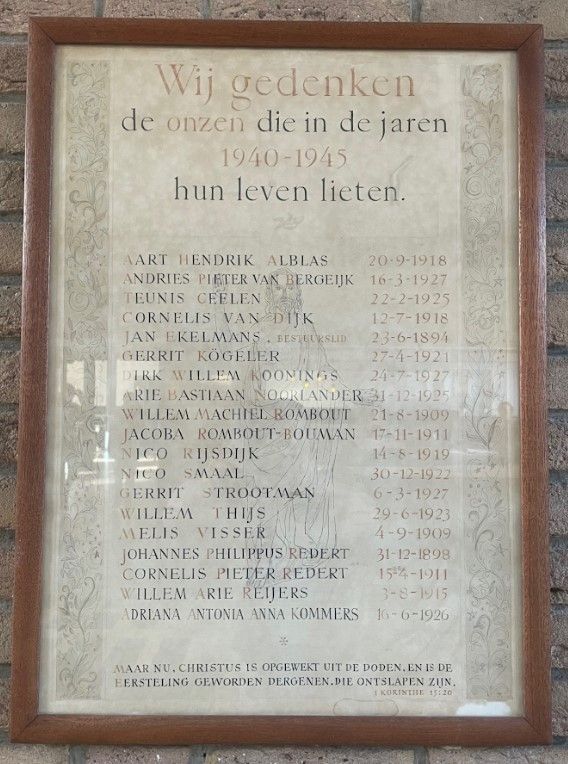 Wij gedenken
de onzen die in de jaren
1940-1945
hun leven lieten.
AART HENDRIK ALBLAS 20-9-1918
ANDRIES PIETER VAN BERGEIJK 16-3-1927
TEUNIS CEELEN 22-2-1925
CORNELIS VAN DIJK 12-7-1918
JAN EKELMANS, BESTUURSLID 23-6-1894
GERRIT KÖGELER 27-4-1921
DIRK WILLEM KOONINGS 24-7-1927
ARIE BASTIAAN NOORLANDER 31-12-1925
WILLEM MACHIEL ROMBOUT 21-8-1909
JACOBA ROMBOUT-BOUMAN 17-11-1911
NICO RIJSDIJK 14-8-1919
NICO SMAAL 30-12-1922
GERRIT STROOTMAN 6-3-1927
WILLEM THIJS 29-6-1923
MELIS VISSER 4-9-1909
JOHANNES PHILIPPUS REDERT 31-12-1898
CORNELIS PIETER REDERT 15-4-1911
WILLEM ARIE REIJERS 3-8-1915
ADRIANA ANTONIA ANNA KOMMERS 16-6-1926
*
MAAR NU, CHRISTUS IS OPGEWEKT UIT DE DODEN, EN IS DE
EERSTELING GEWORDEN DERGENEN, DIE ONTSLAPEN ZIJN.
1 KORINTHE 15:20